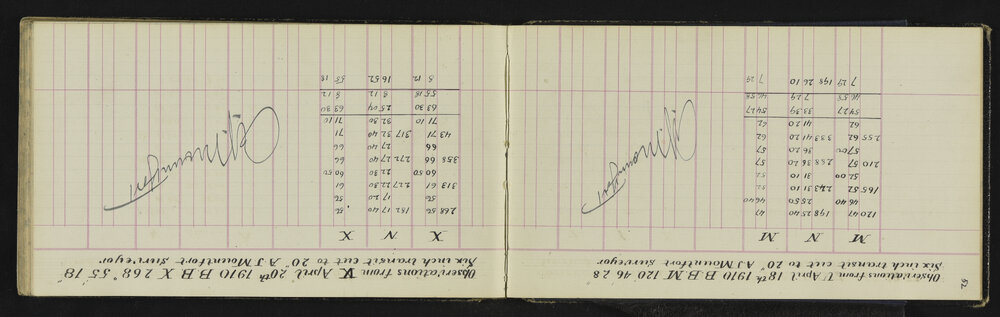 52
Observations from U April 18th 1910 B B M 120 46 28
Six inch transit cut to 20" A J Mountfort Surveyor
M N M
120 47 198 25 40 47
46 40 25 50 46 40
165 52 243 31 10 52
52 00 31 10 52
210 57 288 36 20 57
57 00 36 20 57
255 62 333 41 20 62
62 41 20 62
54 27 33.39 54 27
46 55 7 29 46 58
7 29 198 26 10 7 29
A J Mountfort
Observations from V April 20th 1910 B B X 268° 55' 18"
Six inch transit cut to 20" A J Mountfort Surveyor
X N X
268 52 182 17 40 52
52 17 20 52
313 61 227 22 30 61
60 50 22 30 60 50
358 66 272 27 40 66
66 27 40 66
43 71 317 32 40 71
71 10 32 30 71 10
63 30 25 04 63 30
55 18 8 12 8 12
8 12 16 52 55 18
A J Mountfort